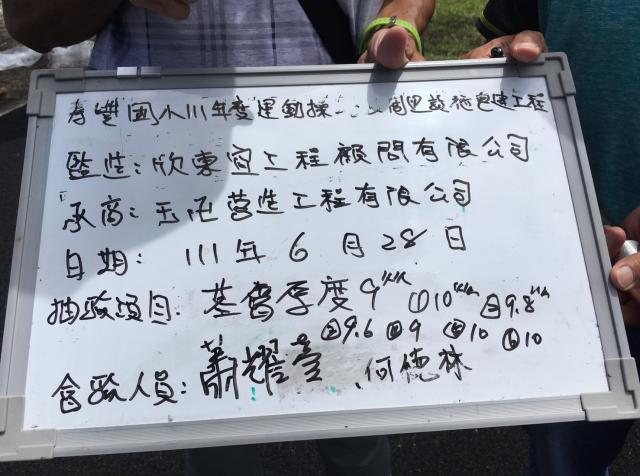 壽豐國小111年度運動操 周邊設施改建工程
監造:欣東宜工程顧問有限公司
承商:玉 營造工程有限公司
日期: 111年 6 月 28 日
抽驗項目: 基層厚度9cm ①10cm ②9.8cm
③9.6 ④9 ⑤10 ⑥10
會驗人員:蕭耀 何德林